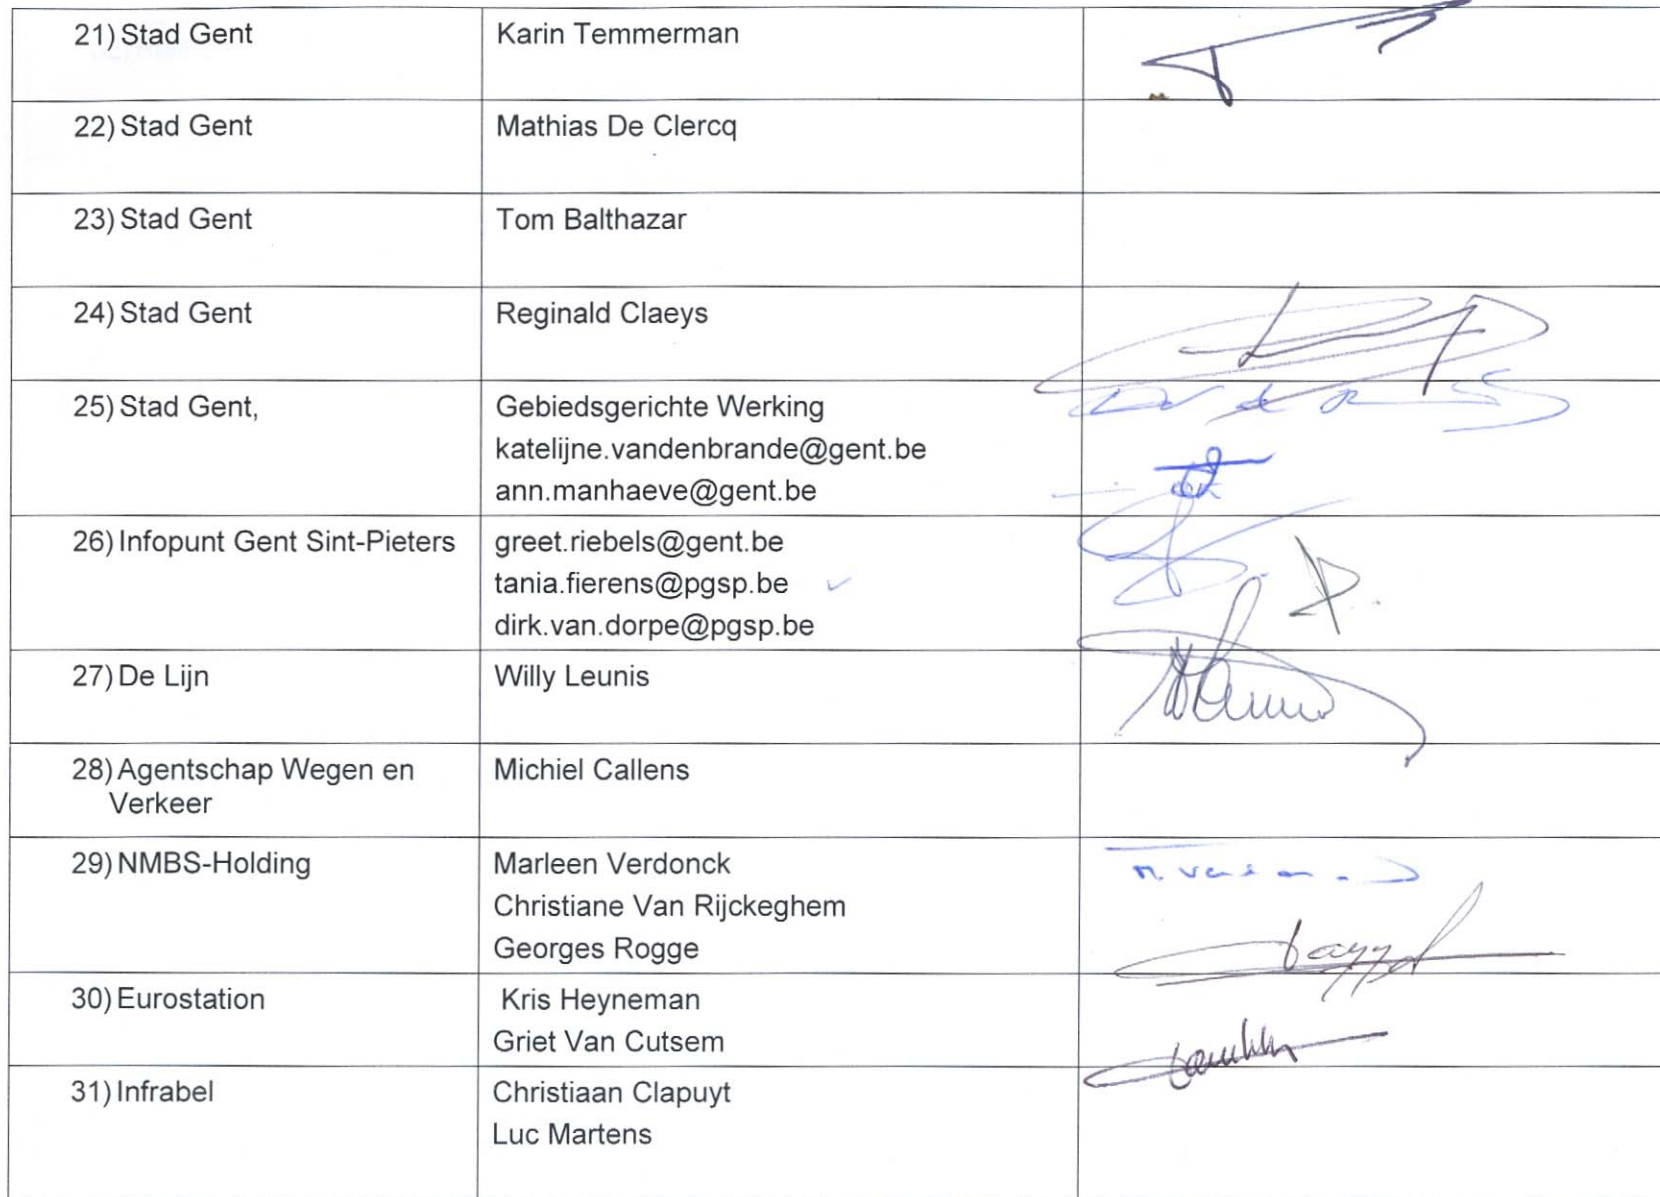 21) Stad Gent Karin Temmerman
22) Stad Gent Mathias De Clercq
23) Stad Gent Tom Balthazar
24) Stad Gent Reginald Claeys
25) Stad Gent, Gebiedsgerichte Werking
katelijne.vandenbrande@gent.be
ann.manhaeve@gent.be
26) Infopunt Gent Sint-Pieters greet.riebels@gent.be
tania.fierens@pgsp.be
dirk.van.dorpe@pgsp.be
27) De Lijn Willy Leunis
28) Agentschap Wegen en Michiel Callens
Verkeer
29) NMBS-Holding Marleen Verdonck
Christiane Van Rijckeghem
Georges Rogge
30) Eurostation Kris Heyneman
Griet Van Cutsem
31) Infrabel Christiaan Clapuyt
Luc Martens